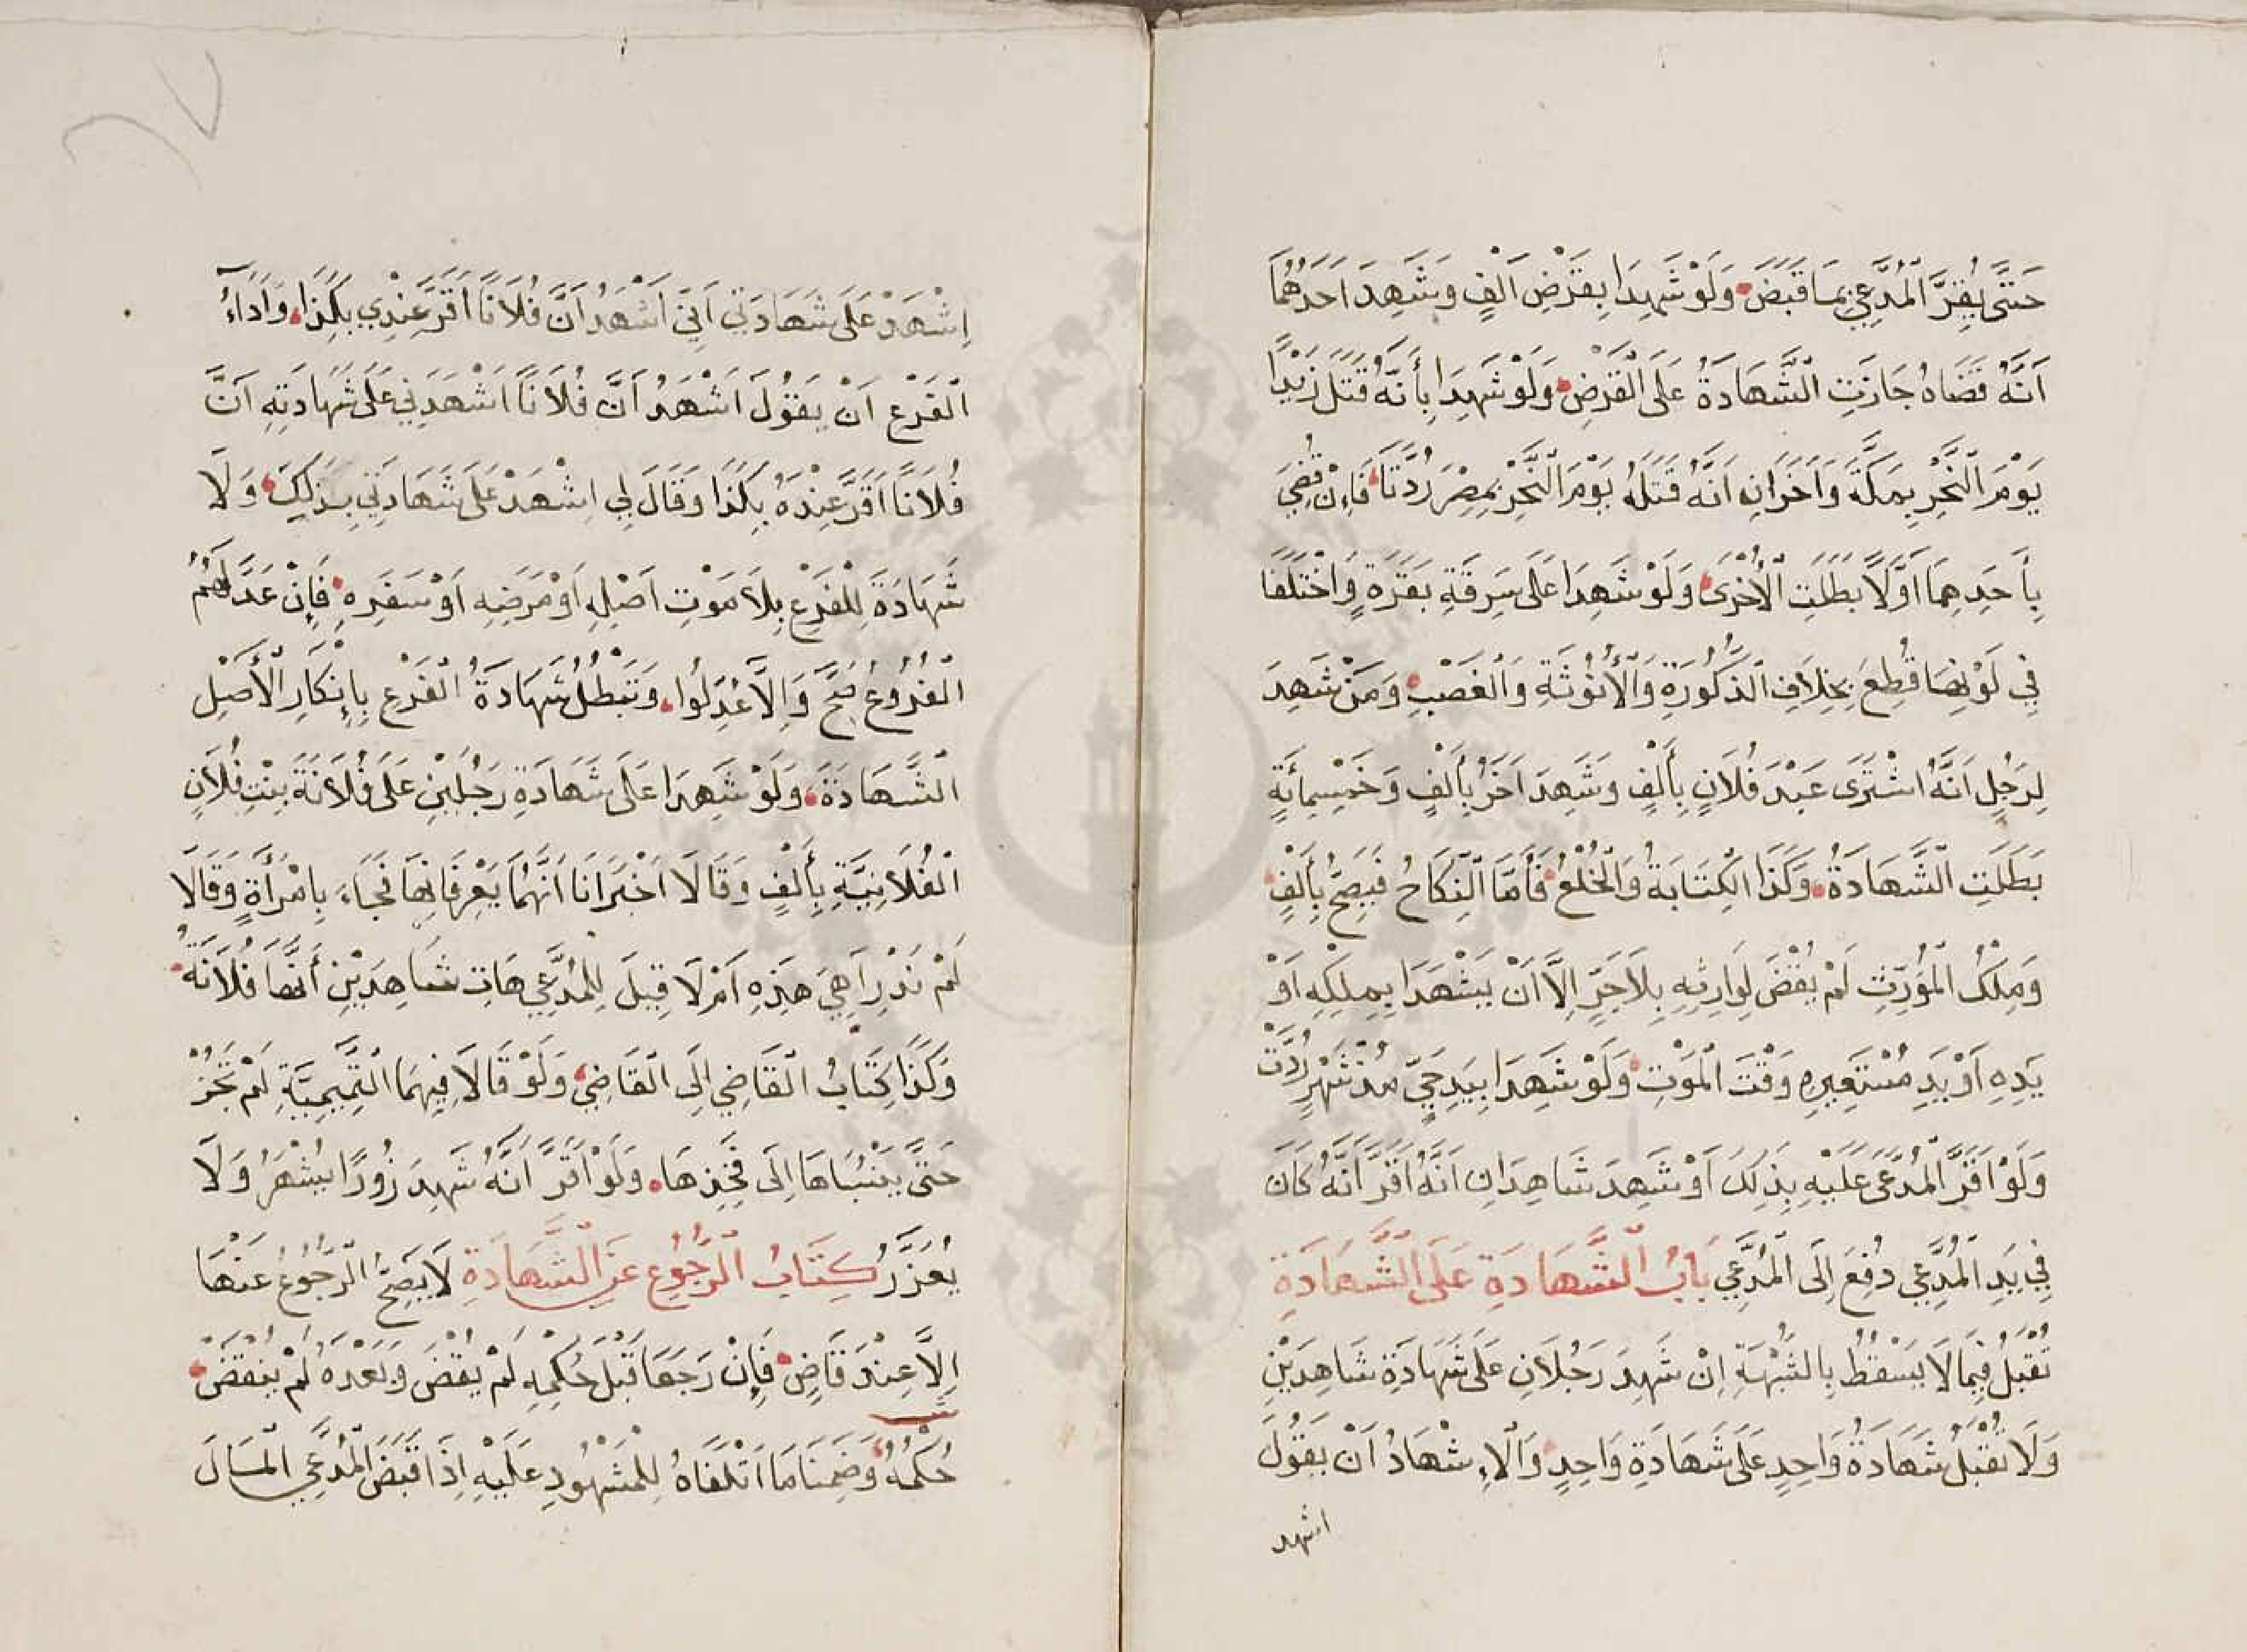 حَتَّى يُقِرَّ الْمُدَّعِي بِمَا قَبَضَ وَلَوْ شَهِدَا بِقَرْضِ اَلْفٍ وَشَهِدَ اَحَدُهُمَا
اَنَّهُ قَضَاهُ جَازَتِ الشَّهَادَةُ عَلَى الْقَرْضِ وَلَوْ شَهِدَا بِأَنَّهُ قَتَلَ زَيْدًا
يَوْمَ النَّحْرِ بِمَكَّةَ وَاَخَرَانِ اَنَّهُ قَتَلَهُ يَوْمَ النَّحْرِ بِمِصْرَ رُدَّتَا فَإِنْ قُضِيَ
بِأَحَدِهِمَا اَوَّلًا بَطَلَتِ الْأُخْرَى وَلَوْ شَهِدَا عَلَى سَرِقَةِ بَقَرَةٍ وَاخْتَلَفَا
فِي لَوْنِهَا قُطِعَ بِخِلَافِ الذُّكُورَةِ وَالْأُنُوثَةِ وَالْغَصْبِ وَمَنْ شَهِدَ
لِرَجُلٍ اَنَّهُ اشْتَرَى عَبْدَ فُلَانٍ بِأَلْفٍ وَشَهِدَ اَخَرُ بِأَلْفٍ وَخَمْسِمِائَةٍ
بَطَلَتِ الشَّهَادَةُ وَكَذَا الْكِتَابَةُ وَالْخُلْعُ فَأَمَّا النِّكَاحُ فَيَصِحُّ بِأَلْفٍ
وَمِلْكُ الْمُوَرِّثِ لَمْ يُقْضَ لِوَارِثِهِ بِلَا جَرٍّ اِلَّا اَنْ يَشْهَدَا بِمِلْكِهِ اَوْ
يَدِهِ اَوْ يَدِ مُسْتَعِيرِهِ وَقْتَ الْمَوْتِ وَلَوْ شَهِدَا بِيَدِ حَيٍّ مُذْ شَهْرٍ رُدَّتْ
وَلَوْ اَقَرَّ الْمُدَّعَى عَلَيْهِ بِذَلِكَ اَوْ شَهِدَ شَاهِدَانِ اَنَّهُ اَقَرَّ اَنَّهُ كَانَ
فِي يَدِ الْمُدَّعِي دُفِعَ اِلَى الْمُدَّعِي بَابُ الشَّهَادَةِ عَلَى الشَّهَادَةِ
تُقْبَلُ فِيمَا لَا يَسْقُطُ بِالشُّبْهَةِ اِنْ شَهِدَ رَجُلَانِ عَلَى شَهَادَةِ شَاهِدَيْنِ
وَلَا تُقْبَلُ شَهَادَةُ وَاحِدٍ عَلَى شَهَادَةِ وَاحِدٍ وَالْاِشْهَادُ اَنْ يَقُولَ
اشهد
اِشْهَدْ عَلَى شَهَادَتِي اَنِّي اَشْهَدُ اَنَّ فُلَانًا اَقَرَّ عِنْدِي بِكَذَا وَاَدَاءُ
الْفَرْعِ اَنْ يَقُولَ اَشْهَدُ اَنَّ فُلَانًا اَشْهَدَنِي عَلَى شَهَادَتِهِ اَنَّ
فُلَانًا اَقَرَّ عِنْدَهُ بِكَذَا وَقَالَ لِي اِشْهَدْ عَلَى شَهَادَتِي بِذَلِكَ وَلَا
شَهَادَةَ لِلْفَرْعِ بِلَا مَوْتِ اَصْلِهِ اَوْ مَرَضِهِ اَوْ سَفَرِهِ فَإِنْ عَدَّلَهُمُ
الْفُرُوعُ صَحَّ وَاِلَّا عُدِّلُوا وَتَبْطُلُ شَهَادَةُ الْفَرْعِ بِاِنْكَارِ الْأَصْلِ
الشَّهَادَةَ وَلَوْ شَهِدَا عَلَى شَهَادَةِ رَجُلَيْنِ عَلَى فُلَانَةَ بِنْتِ فُلَانٍ
الْفُلَانِيَّةِ بِأَلْفٍ وَقَالَا اَخْبَرَانَا اَنَّهُمَا يَعْرِفَانِهَا فَجَاءَ بِامْرَأَةٍ وَقَالَا
لَمْ نَدْرِ اَهِيَ هَذِهِ اَمْ لَا قِيلَ لِلْمُدَّعِي هَاتِ شَاهِدَيْنِ أَنَّهَا فُلَانَةُ
وَكَذَا كِتَابُ الْقَاضِي اِلَى الْقَاضِي وَلَوْ قَالَا فِيهِمَا التَّمِيمِيَّةِ لَمْ تَجُزْ
حَتَّى يَنْسُبَاهَا اِلَى فَخِذِهَا وَلَوْ اَقَرَّ اَنَّهُ شَهِدَ زُورًا يُشْهَرُ وَلَا
يُعَزَّرُ كِتَابُ الرُّجُوعِ عَنِ الشَّهَادَةِ لَا يَصِحُّ الرُّجُوعُ عَنْهَا
اِلَّا عِنْدَ قَاضٍ فَإِنْ رَجَعَا قَبْلَ حُكْمِهِ لَمْ يُقْضَ وَبَعْدَهُ لَمْ يُنْقَضْ
حُكْمُهُ وَضَمِنَا مَا اَتْلَفَاهُ لِلْمَشْهُودِ عَلَيْهِ اِذَا قَبَضَ الْمُدَّعِي الْمَالَ